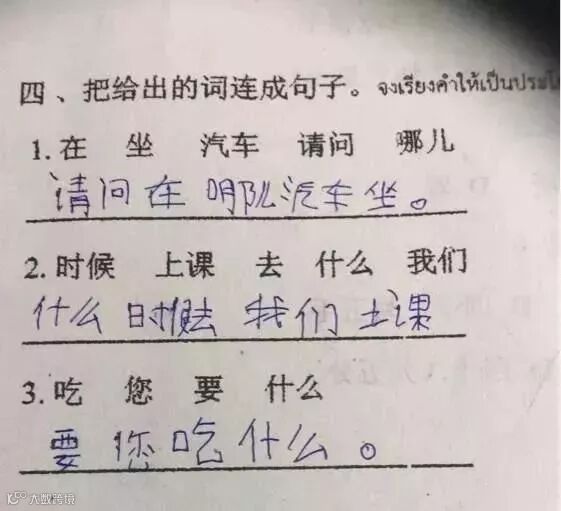 四、把给出的词连成句子。จงเรียงคำให้เป็นประโย
1. 在 坐 汽车 请问 哪儿
请问在哪儿汽车坐。
2. 时候 上课 去 什么 我们
什么时候去我们上课
3. 吃 您 要 什么
要您吃什么。
大数跨境